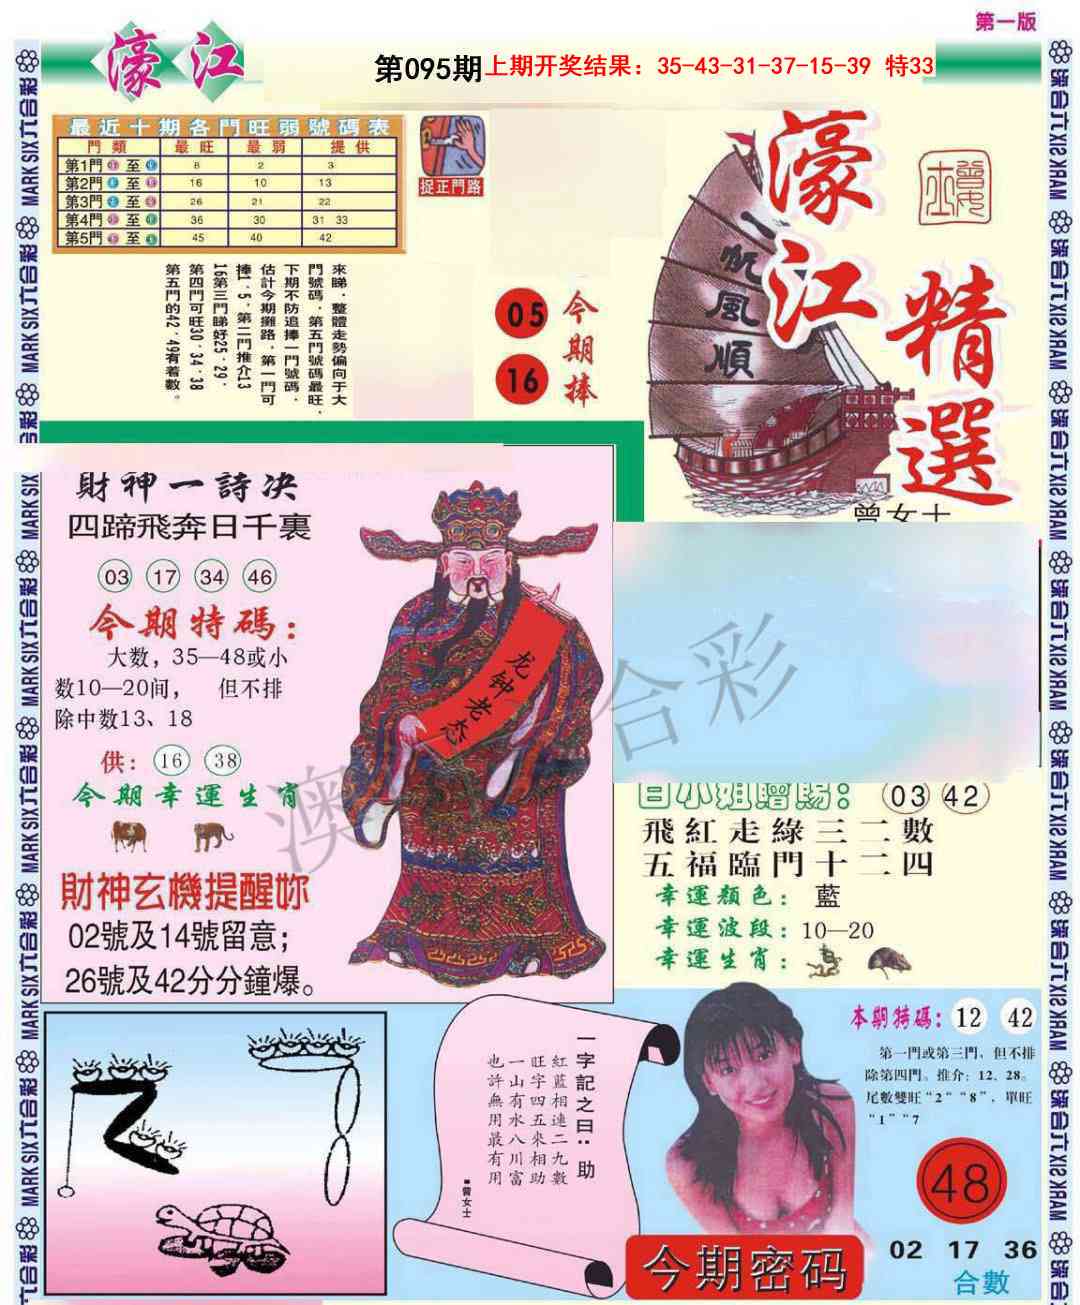 第一版
濠江
第095期 上期开奖结果：35-43-31-37-15-39 特33
最近十期各門旺弱號碼表
門類 最旺 最弱 提供
第1門 至 8 2 3
第2門 至 16 10 13
第3門 至 26 21 22
第4門 至 36 30 31 33
第5門 至 45 40 42
捉正門路
來睇，整體走勢偏向于大
門號碼，第五門號碼最旺，
下期不防追捧一門號碼，
估計今期攤路，第一門可
捧1．5，第二門推介13
16第三門睇好25．29．
第四門可旺30．34．38
第五門的42．49有着數。
05
16
今期捧
一帆風順
濠江
精選
曾女士
財神一詩决
四蹄飛奔日千裏
03 17 34 46
今期特碼：
大数，35—48或小
数10—20间， 但不排
除中数13、18
供：16 38
今期幸運生肖
財神玄機提醒妳
02號及14號留意；
26號及42分分鐘爆。
龙钟老态
澳
合彩
白小姐贈賜：03 42
飛紅走綠三二數
五福臨門十二四
幸運顏色：藍
幸運波段：10—20
幸運生肖：
一字記之曰：助
紅藍相連二九數
旺字四五來相助
一山有水八川富
也許無用最有用
■曾女士
本期特碼：12 42
第一門或第三門，但不排
除第四門。推介：12、28。
尾數雙旺“2”“8”，單旺
“1”“7
48
今期密码
02 17 36
合數
MARK SIX六合彩
MARK SIX六合彩